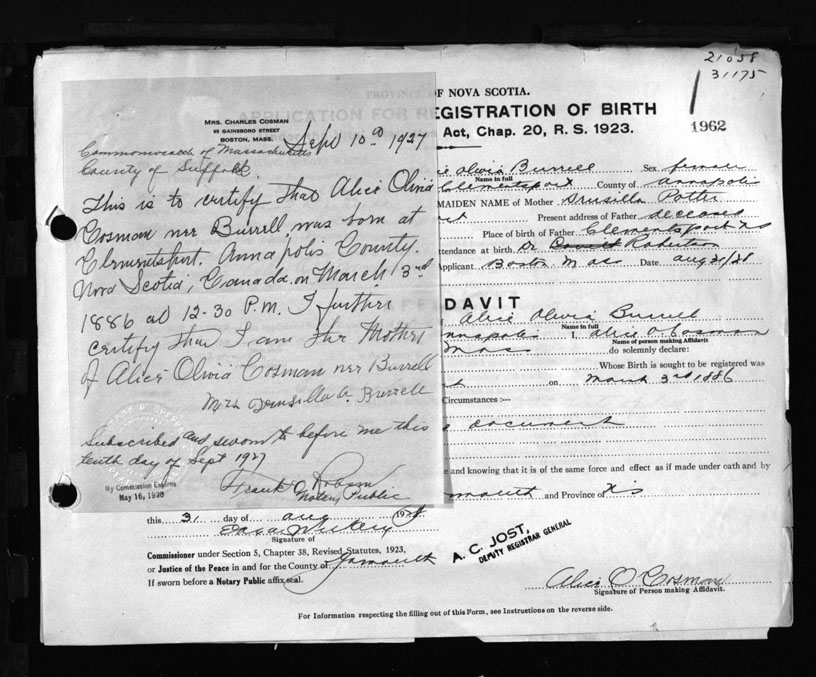 21058
31175
1962
MRS. CHARLES COSMAN
GAINSBORO STREET
BOSTON, MASS.
Sept 10th 1927
Commonwealth of Massachusetts
County of Suffolk.
This is to certify that Alice Olivia
Cosman nee Burrell was born at
Clementsport. Annapolis County.
Nova Scotia, Canada. on March 3rd
1886 at 12-30 P.M. I further
certify that I am the Mother
of Alice Olivia Cosman nee Burrell
Mrs Drusilla A. Burrell
Subscribed and sworn to before me this
tenth day of Sept 1927
Frank O.
Notary Public
My Commission Expires
May 16, 1930
OF NOVA SCOTIA.
REGISTRATION OF BIRTH
Act, Chap. 20, R. S. 1923.
Olivia Burrell Sex female
Name in full
Clementsport County of Annapolis
MAIDEN NAME of Mother Drusilla Potter
Present address of Father deceased
Place of birth of Father Clementsport NS
attendance at birth Dr Robertson
Applicant Boston Mass Date Aug 31/28
DAVIT
Alice Olivia Burrell
Name in full
I, Alice O. Cosman
Name of person making Affidavit
Mass do solemnly declare:
Whose Birth is sought to be registered was
on March 3rd 1886
Circumstances :—
document
and knowing that it is of the same force and effect as if made under oath and by
and Province of NS
this 31 day of Aug 1928
Signature of
Commissioner under Section 5, Chapter 38, Revised Statutes, 1923,
or Justice of the Peace in and for the County of Yarmouth
If sworn before a Notary Public affix seal.
A. C. JOST,
DEPUTY REGISTRAR GENERAL
Alice O Cosman
Signature of Person making Affidavit.
For Information respecting the filling out of this Form, see Instructions on the reverse side.